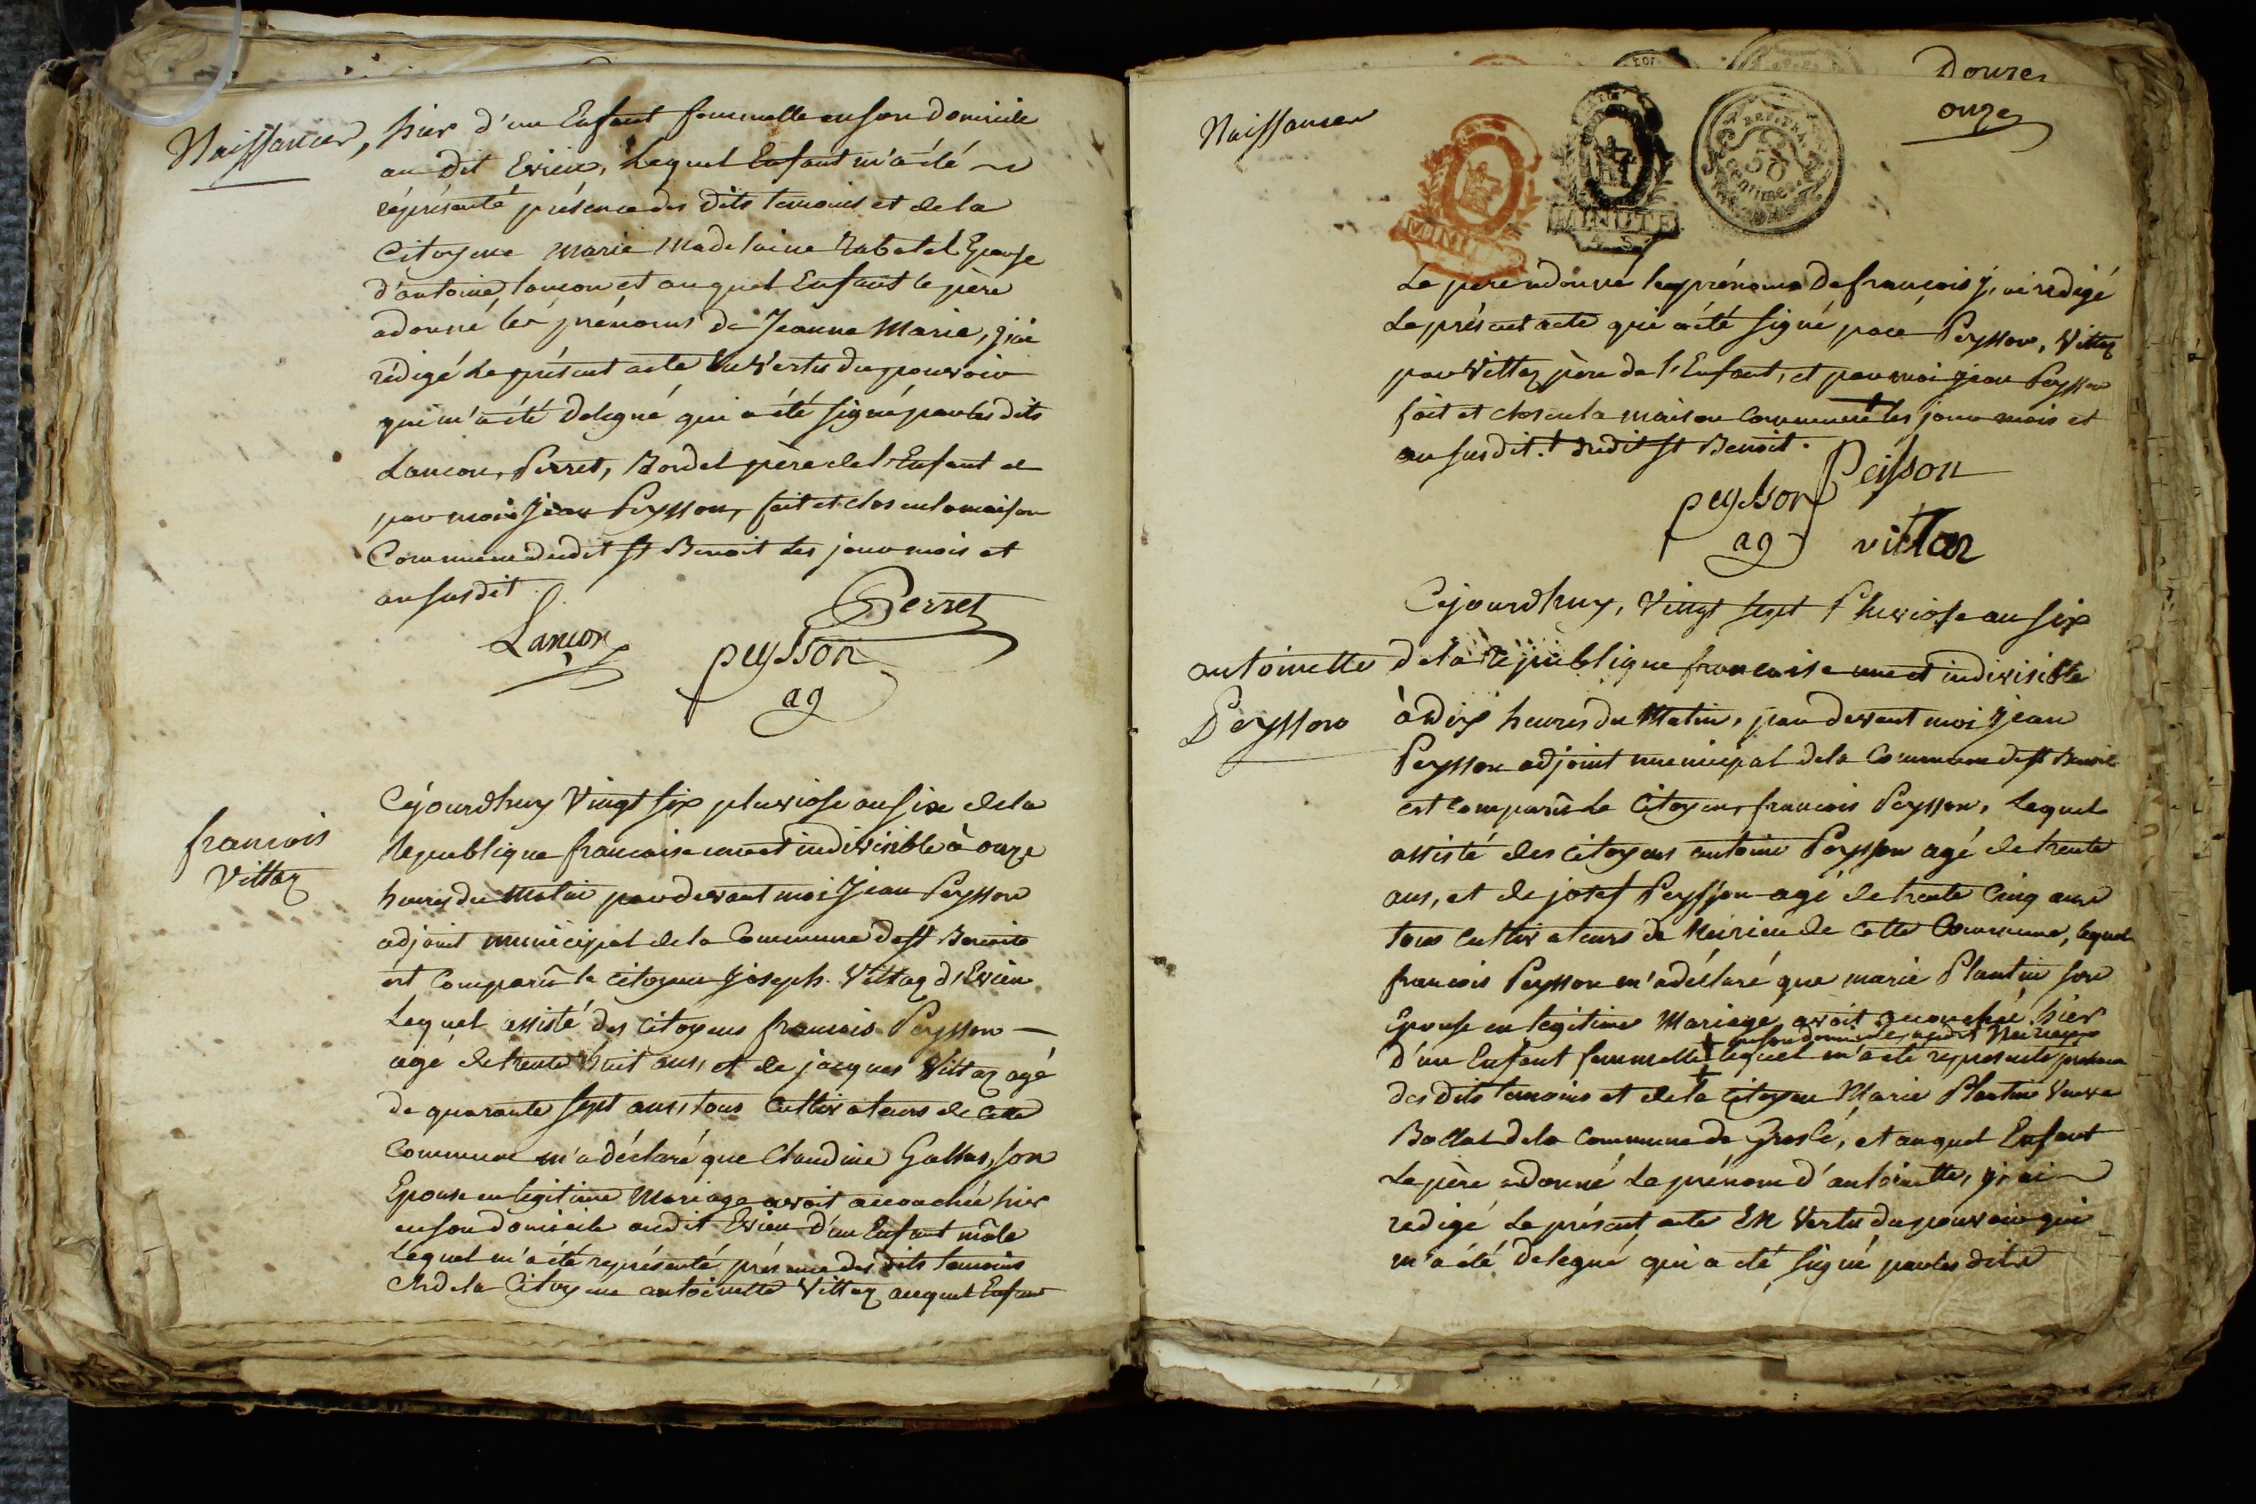 Naissances,
hier d'un Enfant femmelle en son domicile
au dit Evieu, Lequel Enfant m'a été
réprésenté présence des dits temoins et de la
Citoyene Marie Madelaine Rabatel Epouse
d'antoine lancon et auquel Enfant le père
a donné les prénoms de Jeanne Marie, j'ai
rédigé Le présent acte En Vertu du pouvoir
qui m'a été Delegué qui a été signé par les dits
Lancon, Perret, père de l'Enfant et
par moi Jean Peysson, fait et clos en la maison
Commune dudit St Benoit les jour mois et
an susdit.
Lancon
Perret
peysson
ag
francois
Vittoz
Cejourdhuy Vingt six pluviose an six de la
Republique francaise une et indivisible à onze
heures du Matin par devant moi Jean Peysson
adjoint municipal de la Commune de St Benoit
est Comparû le citoyen Joseph Vittoz d'Evieu
Lequel assisté des Citoyens francois Peysson
agé de trente huit ans, et de jacques Vittoz agé
de quarante sept ans, tous Cultivateurs de Cette
Commune m'a déclaré que Claudine son
Epouse en legitime Mariage avoit accouchée hier
en son domicile audit Evieu d'un Enfant mâle
Lequel m'a été représenté présence des dits temoins
et de la Citoyene antoinette Vittoz auquel Enfant
Naissances
Douze
onze
MINUTE
MINUTE
50
Centimes
Le père a donné le prénom De francois j'ai redigé
Le présent acte qui a été signé par Peysson, Vittoz
par Vittoz père de l'Enfant, et par moi jean Peysson
fait et clos en la maison Commune + les jour mois et
an susdit. + dudit St Benoit.
Peisson
peysson
ag
vittoz
Cejourdhuy, Vingt sept Pluviose an six
antoinette
Peysson
de la République francaise une et indivisible
à Dix heures du Matin, par devant moi Jean
Peysson adjoint municipal de la Commune de St Benoit
est Comparû Le Citoyen francois Peysson, Lequel
assisté des citoyens antoine Peysson agé de trente
ans, et de josef Peysson agé de trente Cinq ans
tous Cultivateurs de Meirieu de Cette Commune, lequel
francois Peysson m'a déclaré que marie Plantin son
Epouse en legitime Mariage avoit accouchée hier
+ en son domicile audit Meirieux
d'un Enfant femmelle + lequel m'a été représenté présence
des dits temoins et de la Citoyene Marie Plantin Veuve
Ballat de la Commune de et auquel Enfant
Le père a donné Le prénom d'antoinette, j'ai
redigé Le présent acte En Vertu du pouvoir qui
m'a été Delegué qui a été signé par les dits